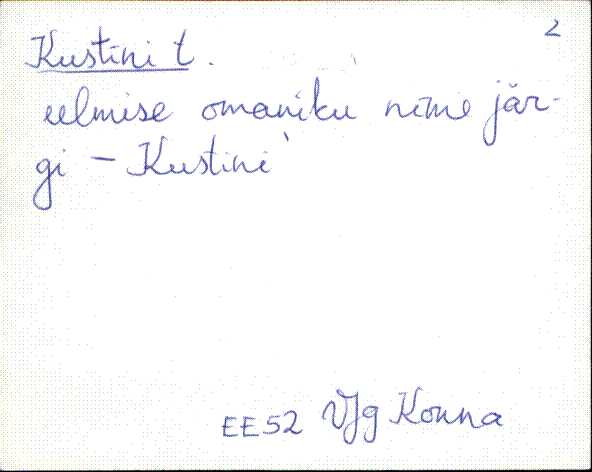 2
Kustini t.
eelmise omaniku nime jär-
gi – Kustini
EE52 VJg Konna